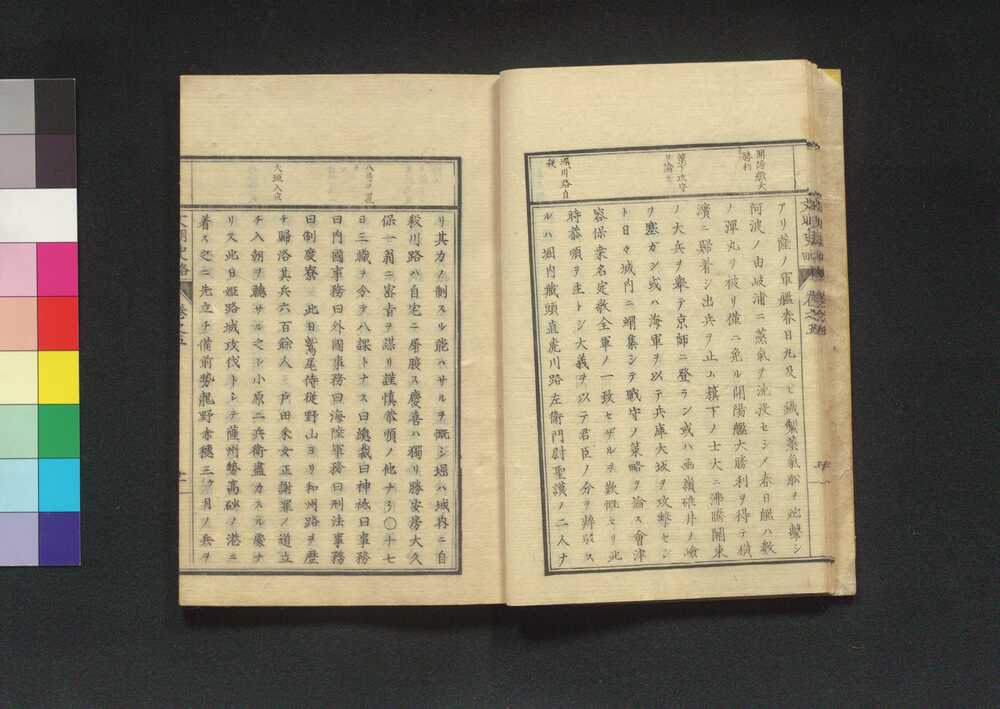 開陽艦大
勝利
籏下攻守
ヲ論ス
堀川路自
殺
アリ薩ノ軍艦春日丸及ヒ鐵製蒸氣船ヲ炮擊シ
阿波ノ由岐浦ニ蒸氣ヲ沈沒セシメ春日艦ハ數
ノ彈丸ヲ被リ僅ニ免ル開陽艦大勝利ヲ得テ橫
濱ニ歸着シ出兵ヲ止ム籏下ノ士大ニ沸騰關東
ノ大兵ヲ舉テ京師ニ登ラン或ハ函嶺碓井ノ嶮
ヲ塞ガン或ハ海軍ヲ以テ兵庫大坂ヲ攻擊セン
ト日々城内ニ蝟集シテ戰守ノ策略ヲ論ス會津
容保桑名定敬全軍ノ一致セザルヲ歎慨セリ此
時恭順ヲ主トシ大義ヲ以テ君臣ノ分ヲ辨駁ス
ルハ堀内藏頭直虎川路左衛門尉聖謨ノ二人ナ
八局ヲ置
大垣入京
リ其力ノ制スル能ハサルヲ慨シ堀ハ城内ニ自
殺川路ハ自宅ニ屠腹ス慶喜ハ獨リ勝安房大久
保一翁ニ密旨ヲ謀リ謹慎恭順ノ他ナシ〇十七
日三職ヲ分テ八課トナス曰總裁曰神祗曰事務
曰内國事務曰外國事務曰海陸軍務曰刑法事務
曰制度寮 此日鷲尾侍從野山ヨリ和州路ヲ歴
テ歸洛其兵六百餘人 戸田釆女正謝罪ノ道立
チ入朝ヲ聽サル之レ小原二兵衛盡力スル處ナ
リ又此日姫路城攻伐トシテ薩州勢高砂ノ港ニ
着ス之ニ先立チ備前勢龍野赤穗三ヶ月ノ兵ヲ
文明史略
卷之五